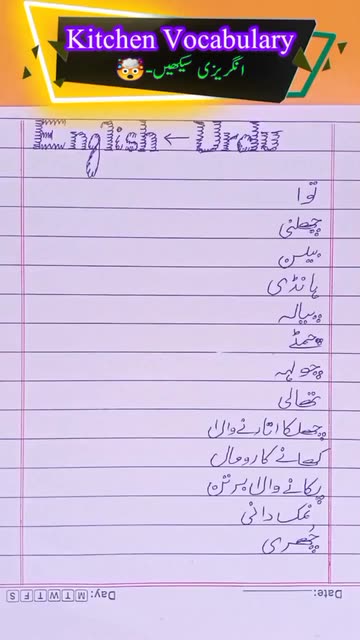 Kitchen Vocabulary
انگریزی سیکھیں-🤯
English ← Urdu
توا
چھلنی
بیلن
ہانڈی
پیالہ
چمٹے
چولہہ
تھالی
چھلکا اتارنے والا
کھانے کا رومال
پکانے والا برتن
نمک دانی
چُھری
Date: Day: M T W T F S